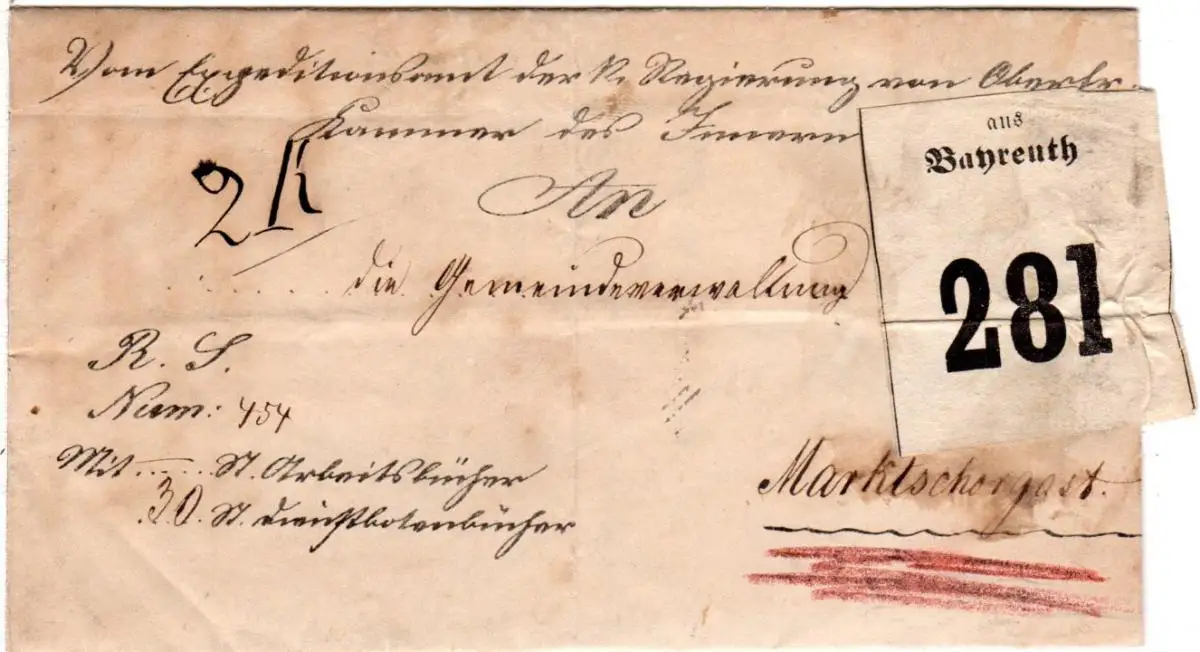 Vom Expeditionsamt der K. Regierung von Oberfr.
Kammer des Innern
aus
Bayreuth
281
An
die Gemeindeverwaltung
R. S.
Num: 454
Mit ..... St. Arbeitsbücher
30. St. Dienstbotenbücher
Marktschorgast.